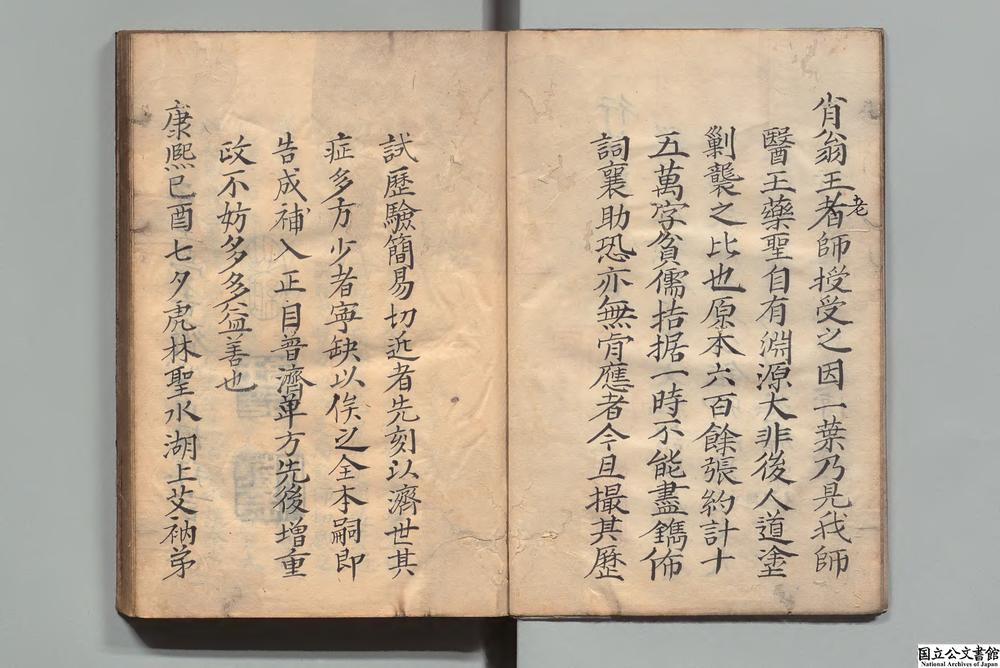 肯翁王老者師授受之因一葉乃見我師
醫王藥聖自有淵源大非後人道塗
剿襲之比也原本六百餘張約計十
五萬字貧儒拮据一時不能盡鐫佈
詞襄助恐亦無肯應者今且撮其歷
試歷驗簡易切近者先刻以濟世其
症多方少者寧缺以俟之全本嗣即
告成補入正目普濟单方先後增重
改不妨多多益善也
康熈己酉七夕虎林聖水湖上艾衲弟
国立公文書館
National Archives of Japan